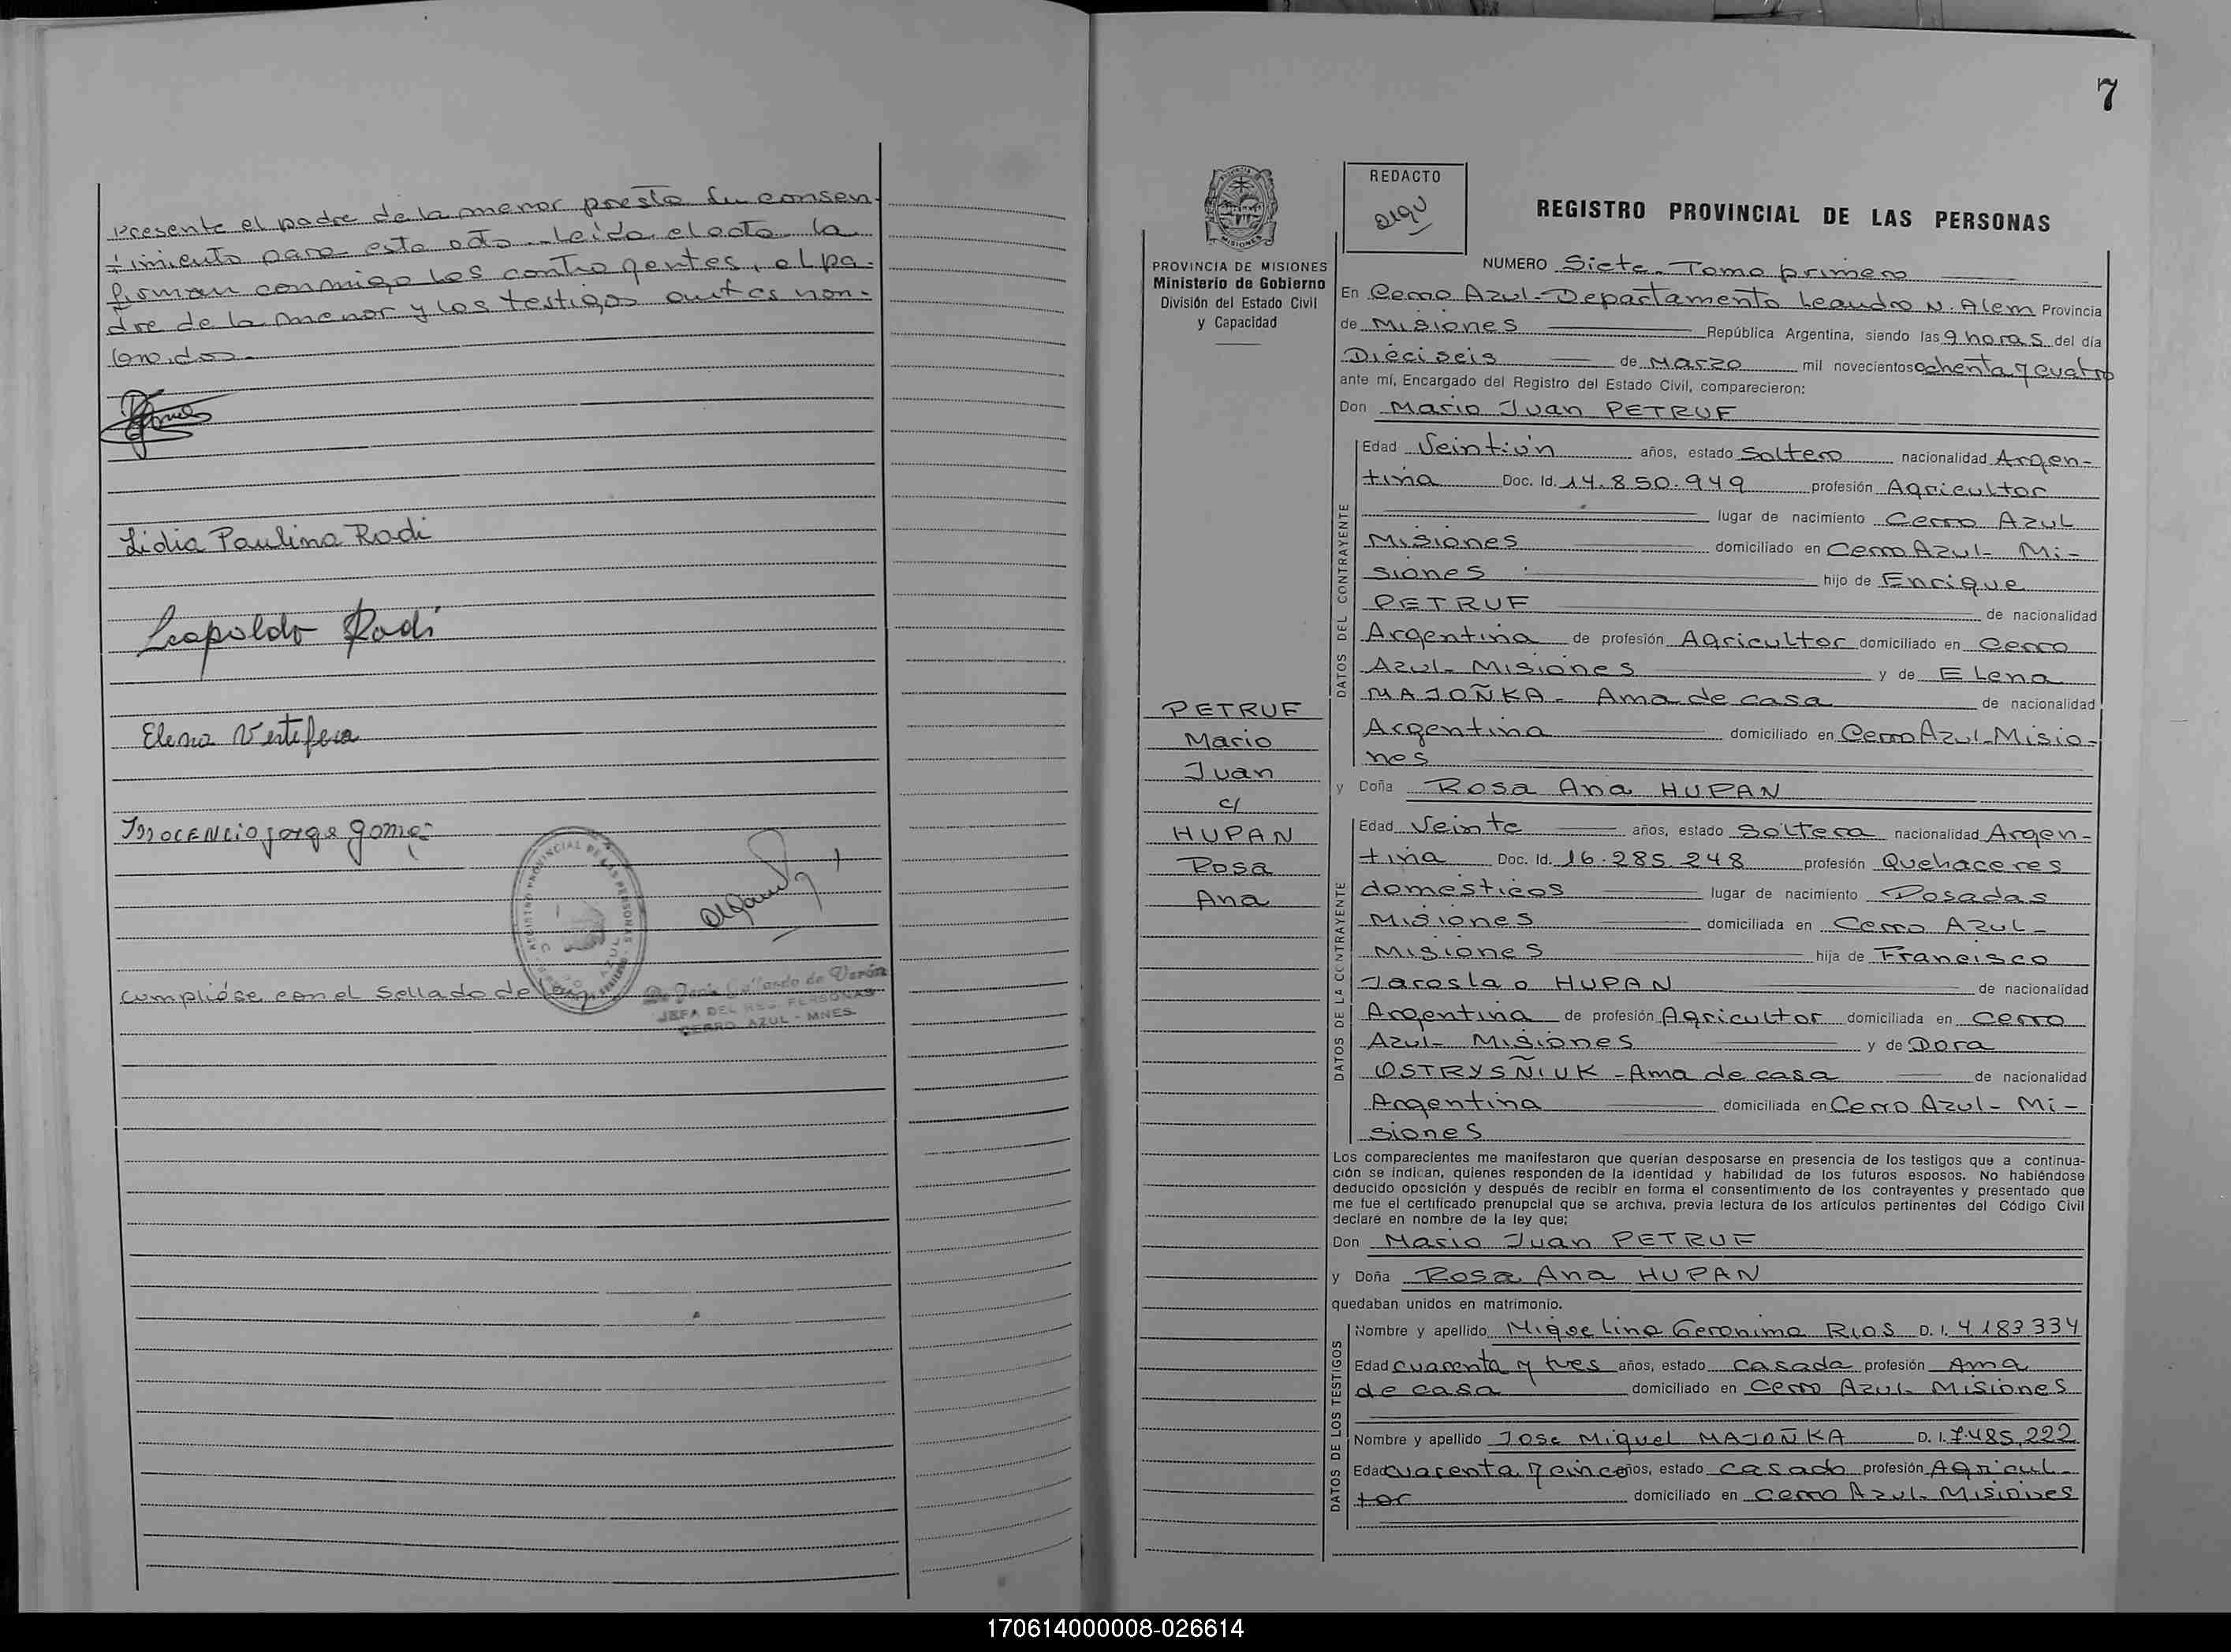 Presente el padre de la menor presta su consen-
timiento para este acto. Leída el acta la
firman conmigo los contrayentes, el pa-
dre de la menor y los testigos antes non-
Lidia Paulina Rodi
Leopoldo Rodi
Elena
INOCENCIO jorge gomez
REGISTRO PROVINCIAL DE LAS PERSONAS
Cumplióse con el sellado de ley
de Varón
JEFA DEL REG. PERSONAS
CERRO AZUL - MNES.
7
PROVINCIA DE MISIONES
Ministerio de Gobierno
División del Estado Civil
y Capacidad
PETRUF
Mario
Juan
c/
HUPAN
Rosa
Ana
REDACTO
REGISTRO PROVINCIAL DE LAS PERSONAS
NUMERO Siete - Tomo primero
En Cerro Azul - Departamento Leandro N. Alem Provincia
de Misiones República Argentina, siendo las 9 horas del día
Dieciseis de Marzo mil novecientos ochenta y cuatro
ante mí, Encargado del Registro del Estado Civil, comparecieron:
Don Mario Juan PETRUF
DATOS DEL CONTRAYENTE
Edad Veintiún años, estado Soltero nacionalidad Argen-
tina Doc. Id. 14.850.949 profesión Agricultor
lugar de nacimiento Cerro Azul
Misiones domiciliado en Cerro Azul - Mi-
siones hijo de Enrique
PETRUF de nacionalidad
Argentina de profesión Agricultor domiciliado en Cerro
Azul - Misiones y de Elena
MAJOÑKA - Ama de casa de nacionalidad
Argentina domiciliado en Cerro Azul - Misio-
nes
y Doña Rosa Ana HUPAN
DATOS DE LA CONTRAYENTE
Edad Veinte años, estado Soltera nacionalidad Argen-
tina Doc. Id. 16.285.248 profesión Quehaceres
domésticos lugar de nacimiento Posadas
Misiones domiciliada en Cerro Azul -
Misiones hija de Francisco
Jaroslao HUPAN de nacionalidad
Argentina de profesión Agricultor domiciliada en Cerro
Azul - Misiones y de Dora
OSTRYSÑIUK - Ama de casa de nacionalidad
Argentina domiciliada en Cerro Azul - Mi-
siones
Los comparecientes me manifestaron que querían desposarse en presencia de los testigos que a continua-
ción se indican, quienes responden de la identidad y habilidad de los futuros esposos. No habiéndose
deducido oposición y después de recibir en forma el consentimiento de los contrayentes y presentado que
me fue el certificado prenupcial que se archiva, previa lectura de los artículos pertinentes del Código Civil
declaré en nombre de la ley que;
Don Mario Juan PETRUF
y Doña Rosa Ana HUPAN
quedaban unidos en matrimonio.
DATOS DE LOS TESTIGOS
Nombre y apellido Miguelina Geronima RIOS D. I. 4183334
Edad cuarenta y tres años, estado casada profesión Ama
de casa domiciliado en Cerro Azul - Misiones
Nombre y apellido Jose Miguel MAJOÑKA D. I. 7.485.222
Edad cuarenta y cinco años, estado casado profesión Agricul-
tor domiciliado en Cerro Azul - Misiones
170614000008-026614